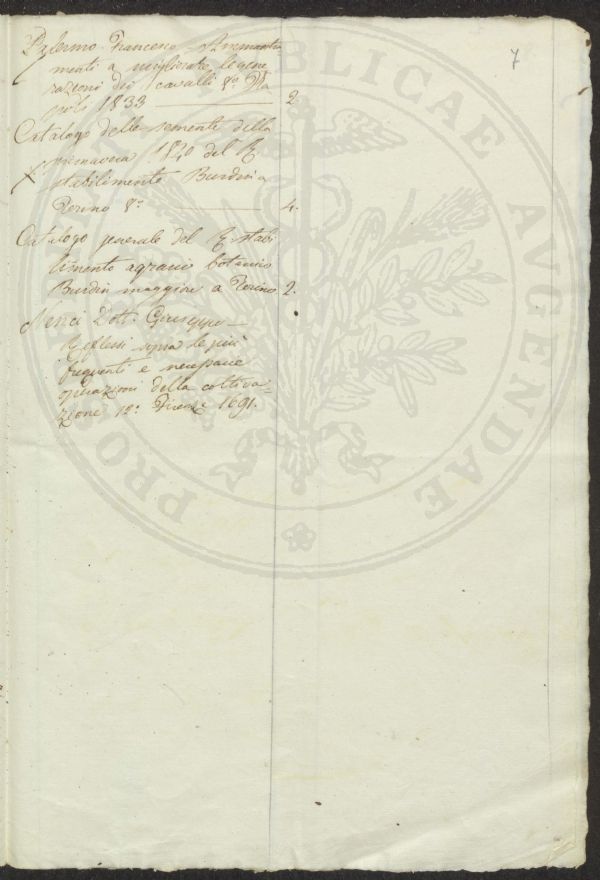 7
Palermo Francesco
menti a migliorare le gene
razioni dei cavalli 8.° Na
poli 1833 2
Catalogo delle semente della
primavera 1840 del R.
X stabilimento Burdin a
Torino 8.° 4.
Catalogo generale del R. stabi
limento agrario botanico
Burdin maggiore a Torino 2.
Nenci Dott. Giuseppe
Riflessi sopra le più
frequenti e necessarie
operazioni della coltiva=
zione 12.° Firenze 1691.
PUBLICAE AUGENDAE